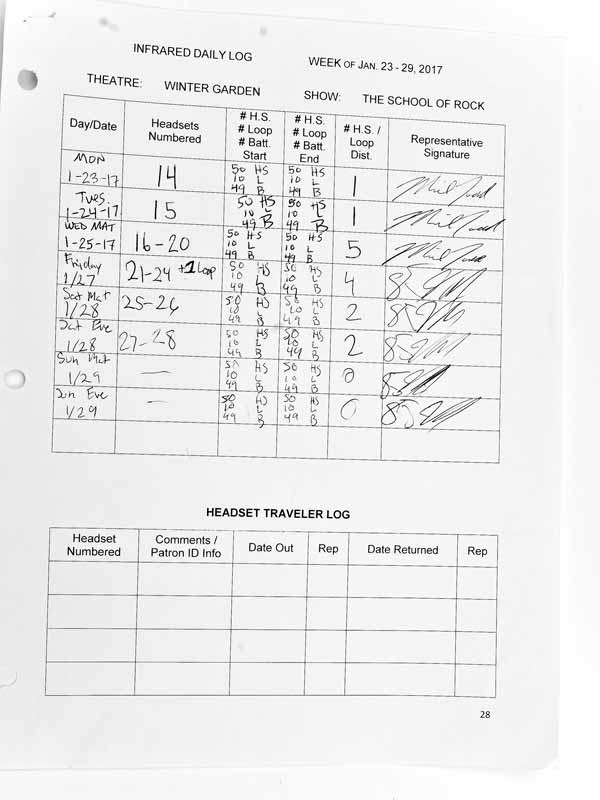 INFRARED DAILY LOG
WEEK OF JAN. 23 - 29, 2017
THEATRE: WINTER GARDEN
SHOW: THE SCHOOL OF ROCK
Day/Date
Headsets
Numbered
# H.S.
# Loop
# Batt.
Start
# H.S.
# Loop
# Batt.
End
# H.S. /
Loop
Dist.
Representative
Signature
MON
1-23-17
14
50 HS
10 L
49 B
50 HS
10 L
49 B
1
TUES.
1-24-17
15
50 HS
10 L
49 B
50 HS
10 L
49 B
1
WED MAT
1-25-17
16-20
50 HS
10 L
49 B
50 HS
10 L
49 B
5
Friday
1/27
21-24 +1 Loop
50 HS
10 L
49 B
50 HS
10 L
49 B
4
Sat Mat
1/28
25-26
50 HS
10 L
49 B
50 HS
10 L
49 B
2
Sat Eve
1/28
27-28
50 HS
10 L
49 B
50 HS
10 L
49 B
2
Sun Mat
1/29
—
50 HS
10 L
49 B
50 HS
10 L
49 B
0
Sun Eve
1/29
—
50 HS
10 L
49 B
50 HS
10 L
49 B
0
HEADSET TRAVELER LOG
Headset
Numbered
Comments /
Patron ID Info
Date Out
Rep
Date Returned
Rep
28